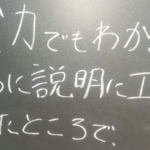 カでもわか
に説明に工
たところで、